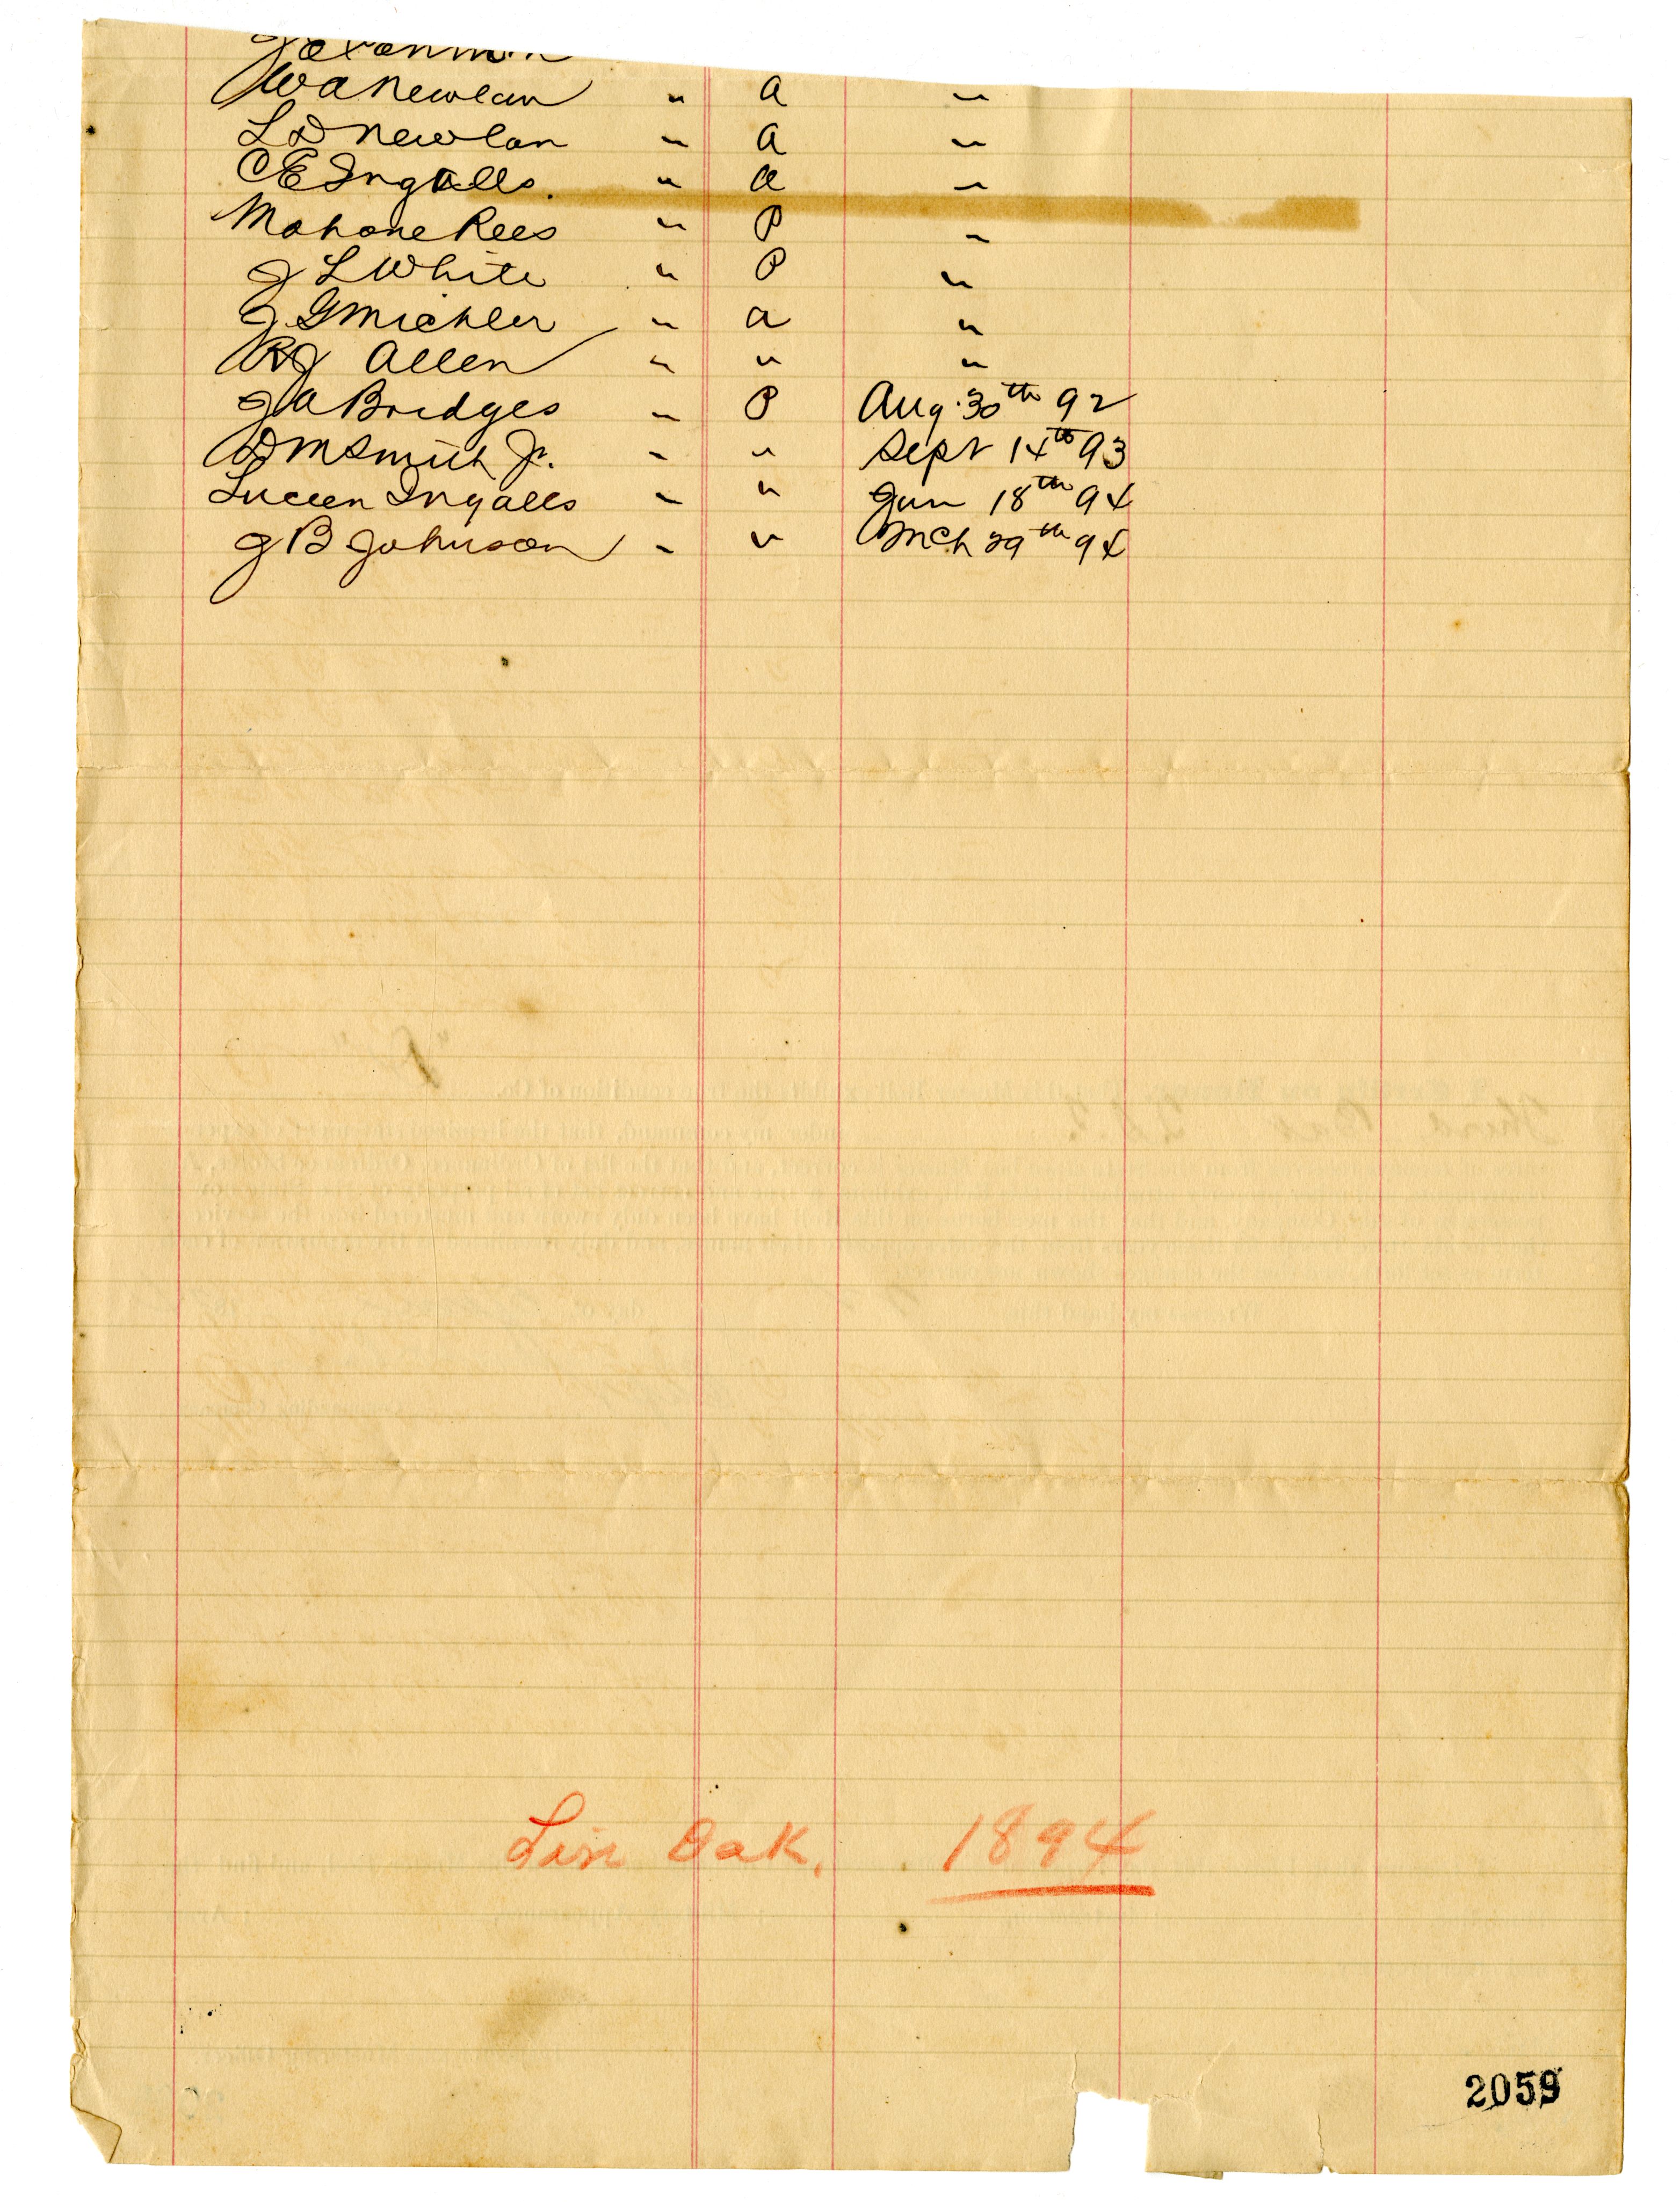 W A Newlan " a "
L D Newlan " a "
C E Ingalls. " a "
Mahone Rees " P "
J L White " P "
J G Michler " a "
R J Allen " " "
J A Bridges " P Aug. 30th 92
D M Smith Jr. " " Sept 14th 93
Lucien Ingalls " " Jan 18th 94
J B Johnson " " Mch 29th 94
Live Oak. 1894
2059